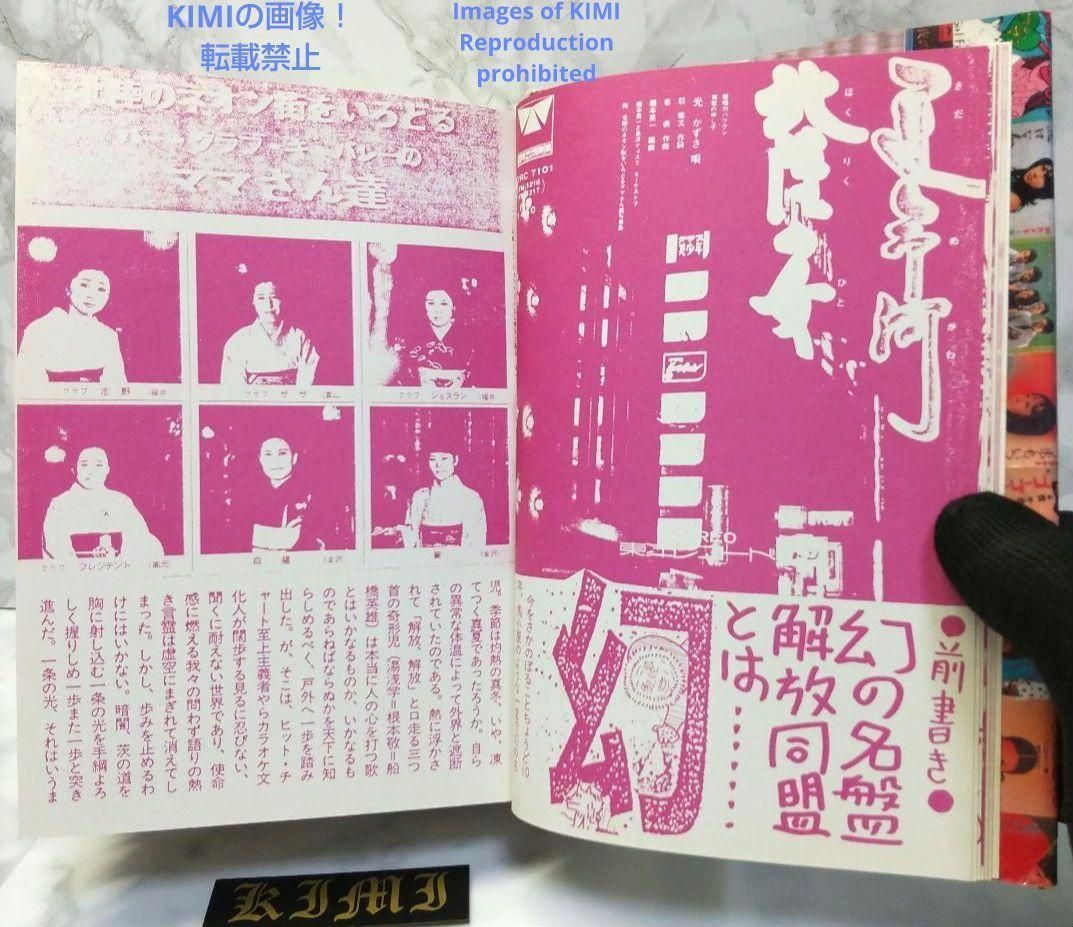 KIMIの画像！
転載禁止
Images of KIMI
Reproduction
prohibited
北陸のネオン街をいろどる
ママさん達
クラブ 志野 (福井
クラブ ササ
クラブ ジョスラン (福井
クラブ プレジデント (高岡
(金沢
(金沢
児。季節は灼熱の真冬、いや、凍
てつく真夏であったろうか。自ら
の異常な体温によって外界と遮断
されていたのである。熱に浮かさ
れて「解放、解放」と口走る三つ
首の奇形児（湯浅学＝根本敬＝船
橋英雄）は本当に人の心を打つ歌
とはいかなるものか、いかなるも
のであらねばならぬかを天下に知
らしめるべく、戸外へ一歩を踏み
出した。が、そこは、ヒット・チ
ャート至上主義者やらカラオケ文
化人が闊歩する見るに忍びない、
聞くに耐えない世界であり、使命
感に燃える我々の問わず語りの熱
き言霊は虚空にまぎれて消えてし
まった。しかし、歩みを止めるわ
けにはいかない。暗闇、茨の道を
胸に射し込む一条の光を手綱よろ
しく握りしめ一歩また一歩と突き
進んだ。一条の光、それはいうま
TRC 7101
光 かずさ 唄
ほくりく
ひと
●前書き●
幻の名盤
解放同盟
とは
幻
今をさかのぼることちょうど10
KIMI